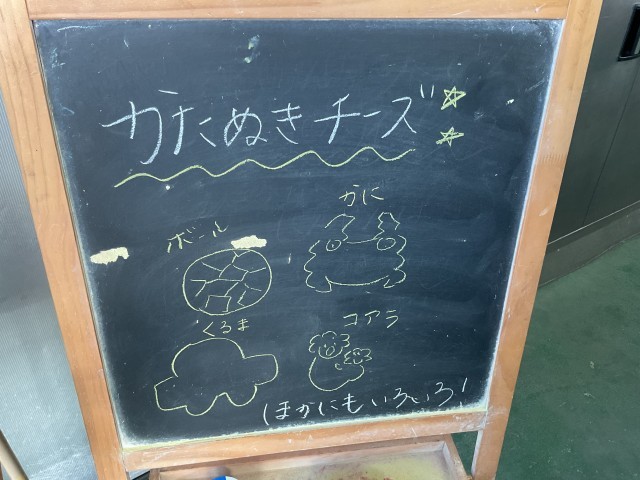 かたぬきチーズ
かに
ボール
くるま
コアラ
ほかにもいろいろ!